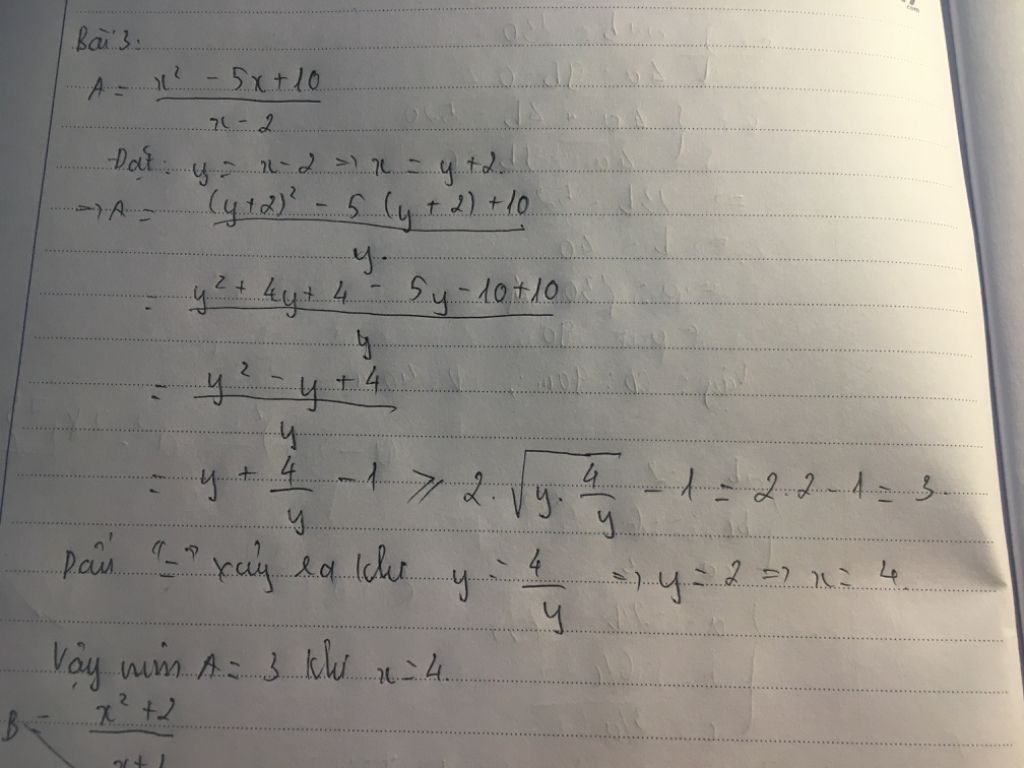 Bài 3:
A = x² - 5x + 10 / x - 2
Đặt: y = x - 2 => x = y + 2.
=> A = (y+2)² - 5 (y + 2) + 10 / y.
= y² + 4y + 4 - 5y - 10 + 10 / y
= y² - y + 4 / y
= y + 4/y - 1 ⩾ 2. √y. 4/y - 1 = 2.2 - 1 = 3.
Dấu "=" xảy ra khi y = 4/y => y = 2 => x = 4
Vậy min A = 3 khi x = 4.
B = x² + 2 / x + 1